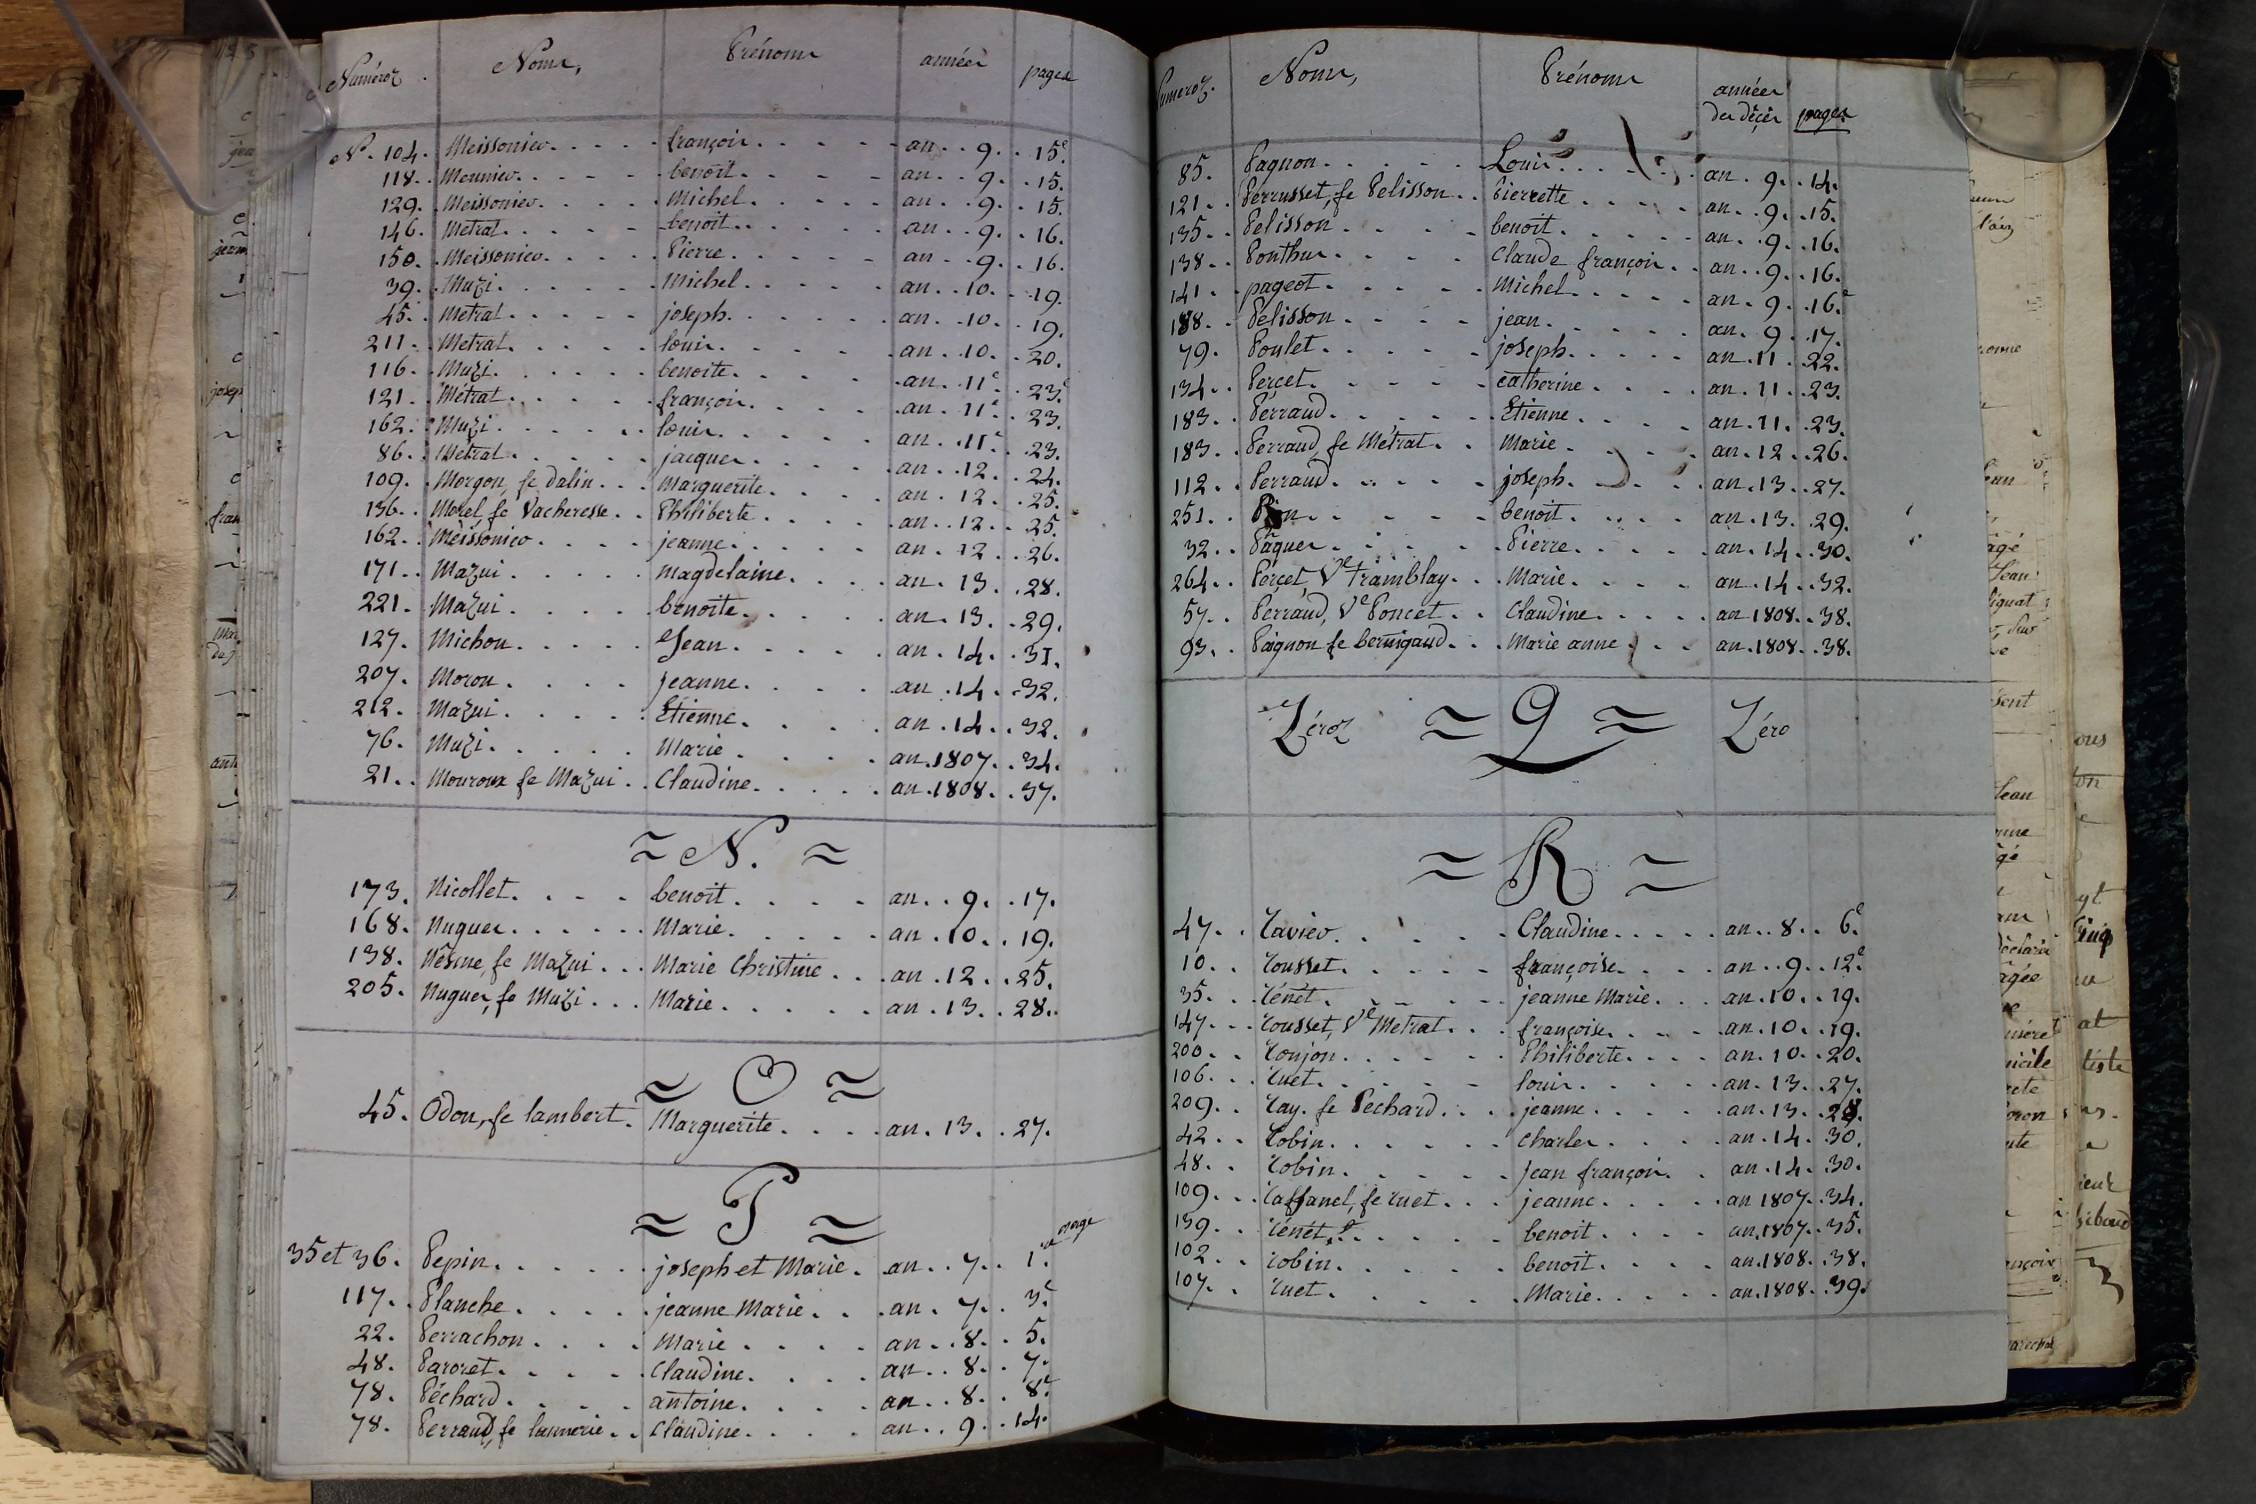 Numéros. Noms, Prénoms années pages
N°. 104. Meissonier. françois. an. 9. 15e.
118. Meunier. benoît. an. 9. 15.
129. Meissonier. Michel. an. 9. 15.
146. Metrat. benoit. an. 9. 16.
150. Meissonier. Pierre. an. 9. 16.
39. Muzi. Michel. an. 10. 19.
45. Metrat. joseph. an. 10. 19.
211. Metrat. louis. an. 10. 20.
116. Muzi. benoite. an. 11e. 23e.
121. Métrat. françois. an. 11e. 23.
162. Muzi. louis. an. 11e. 23.
86. Métrat. jacques. an. 12. 24.
109. Morgon, fe dalin. Marguerite. an. 12. 25.
136. Morel, fe Vacheresse. Philiberte. an. 12. 25.
162. Meissonier. jeanne. an. 12. 26.
171. Mazui. magdelaine. an. 13. 28.
221. Mazui. benoite. an. 13. 29.
127. Michon. Jean. an. 14. 31.
207. Moron. jeanne. an. 14. 32.
212. Mazui. Etienne. an. 14. 32.
76. Muzi. Marie. an. 1807. 34.
21. Mouroux fe Mazui. Claudine. an. 1808. 37.
N.
173. Nicollet. benoit. an. 9. 17.
168. Nugues. Marie. an. 10. 19.
138. Nésme, fe Mazui. Marie Christine. an. 12. 25.
205. Nugues, fe Muzi. Marie. an. 13. 28.
O
45. Odon, fe lambert. Marguerite. an. 13. 27.
P
page
35 et 36. Pepin. joseph et Marie. an. 7. 1.
117. Planche. jeanne Marie. an. 7. 3e
22. Perrachon. Marie. an. 8. 5.
48. Paroret. Claudine. an. 8. 7.
78. Péchard. antoine. an. 8. 8e
78. Perraud, fe Claudine. an. 9. 14.
Numéros. Noms, Prénoms années des décés pages
85. Pagnon. Louis. an. 9. 14.
121. Perrusset, fe Pelisson. Pierrette. an. 9. 15.
135. Pelisson. benoit. an. 9. 16.
138. Ponthus. Claude françois. an. 9. 16.
141. pageot. Michel. an. 9. 16e
188. Pelisson. jean. an. 9. 17.
79. Poulet. joseph. an. 11. 22.
134. Percet. catherine. an. 11. 23.
183. Perraud. Etienne. an. 11. 23.
183. Perraud, fe Métrat. Marie. an. 12. 26.
112. Perraud. joseph. an. 13. 27.
251. benoit. an. 13. 29.
32. Pâques. Pierre. an. 14. 30.
264. Perçet, Ve Framblay. Marie. an. 14. 32.
57. Perraud, Ve Poncet. Claudine. an 1808. 38.
93. Pagnon fe bernigaud. Marie anne. an. 1808. 38.
Zéroz Q Zéro
R
47. Ravier. Claudine. an. 8. 6e.
10. Rousset. françoise. an. 9. 12e.
35. Rénét. jeanne Marie. an. 10. 19.
147. Rousset, Ve Metrat. françoise. an. 10. 19.
200. Roujon. Philiberte. an. 10. 20.
106. Ruet. louis. an. 13. 27.
209. Ray. fe Pechard. jeanne. an. 13. 28.
42. Robin. charles. an. 14. 30.
48. Robin. jean françois. an. 14. 30.
109. Raffanel, fe ruet. jeanne. an 1807. 34.
139. Rénét. benoit. an. 1807. 35.
102. Robin. benoit. an. 1808. 38.
107. Ruet. Marie. an. 1808. 39.